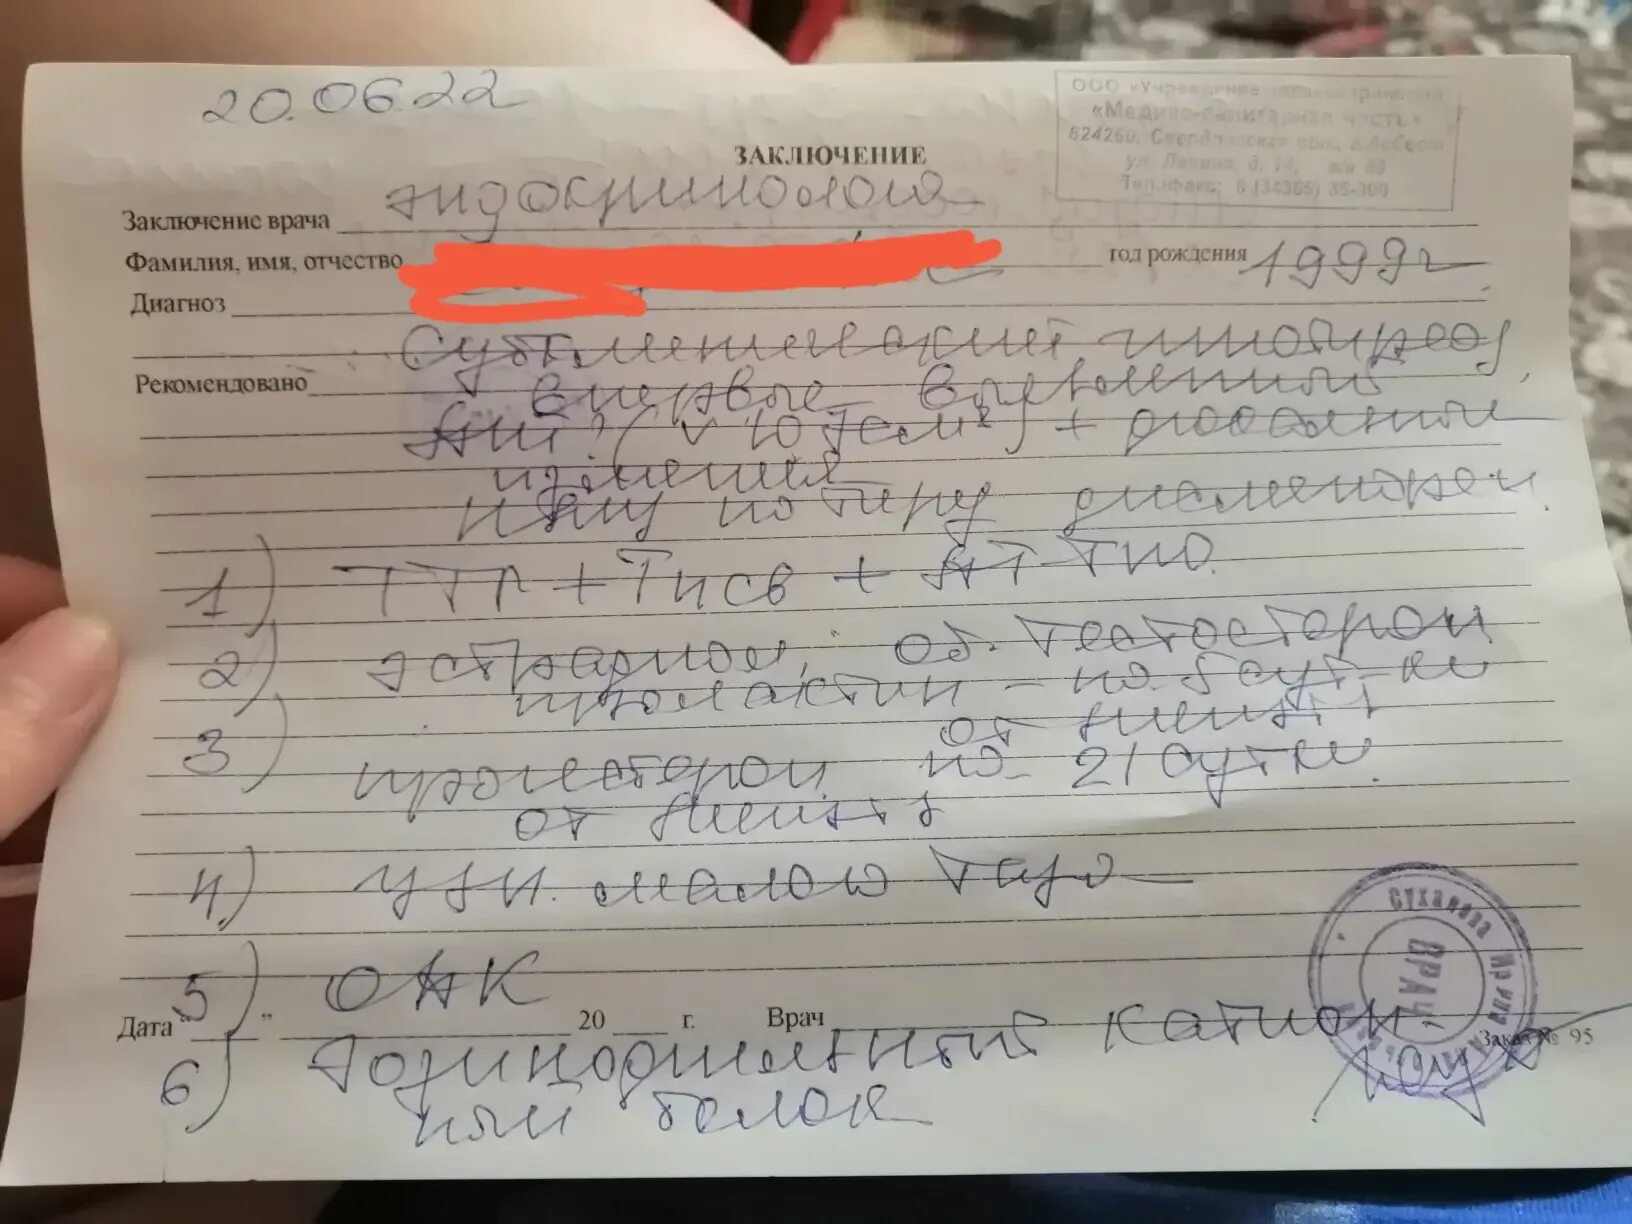 20.06.22
ООО «Учреждение
«Медико-санитарная часть»
624260, Свердловская обл., г.Асбест
ул. Ленина, д. 14, а/я 89
Тел./факс: 8 (34365) 35-300
ЗАКЛЮЧЕНИЕ
Заключение врача эндокринолога
Фамилия, имя, отчество год рождения 1999г
Диагноз
Субклинический гипотиреоз
Рекомендовано впервые выявленный
АИТ? ( V 10,7 см²) + диффузные
изменения
дисменорея
1) ТТГ + Т4св + АТ-ТПО.
2) эстрадиол, об. тестостерон
пролактин - на 5 сут-ки
от начала
3) прогестерон на 21 сутки.
от начала
4) УЗИ малого таза
5) ОАК
Дата " " 20 г. Врач
Заказ № 95
6) Эозинофильный катион
ный белок
Суханова Ирина
ВРАЧ